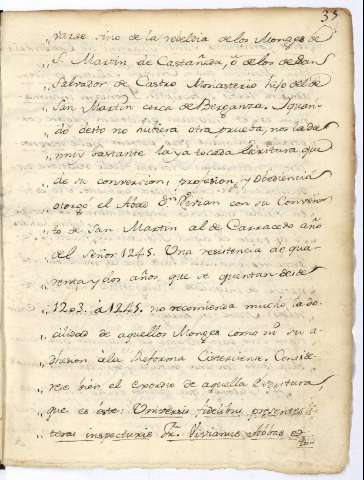 35
„ varse sino de la rebeldia de los Monges de
„ S. Martin de Castañeda, ô de los de San
„ Salvador de Castro Monasterio hijo del de
„ San Martin cerca de Berganza. Y quan-
„ do desto no hubiera otra prueba, nos la da
„ muy bastante la ya tocada Escritura que
„ de su conversion, profesion, y obediencia
„ otorgó el Abad Dn. Vivian con su Conven-
„ to de San Martin al de Carracedo año
„ del Señor 1245. Una resistencia de qua-
„ renta y dos años que se quentan desde
„ 1203. â 1245. no recomienda mucho la do-
„ cilidad de aquellos Monges como ni su a-
„ dhesion â la Reforma Cisterciense. Conside-
„ rese bien el exordio de aquella Escritura
„ que es éste: Universis fidelibus presentes li-
„ teras inspecturis Fr. Vivianus Abbas et